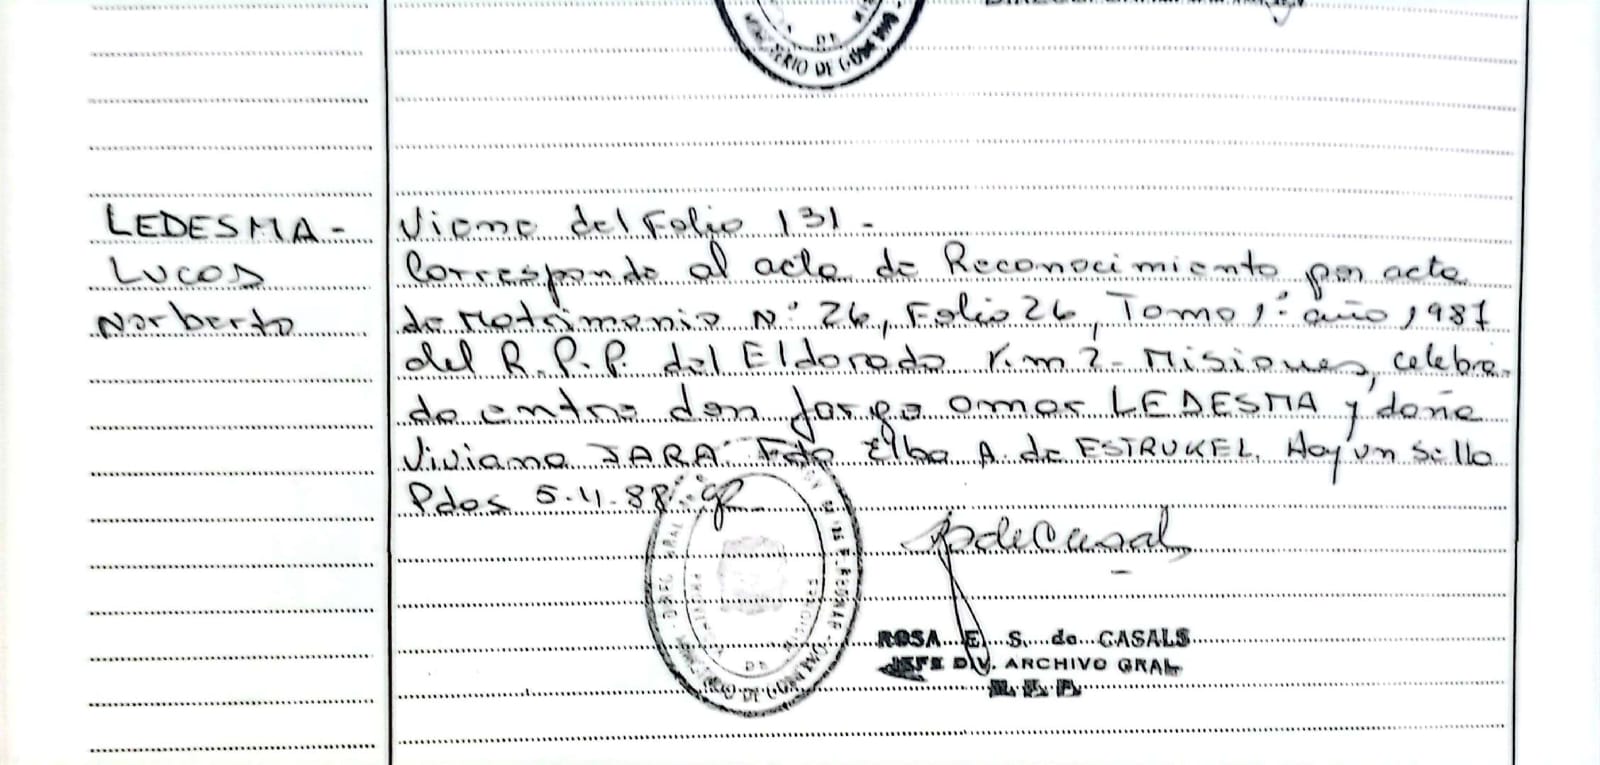 MINISTERIO DE GOBIERNO
LEDESMA -
Lucas
Norberto
Viene del Folio 131 -
Corresponde al acta de Reconocimiento por acta
de Matrimonio N° 26, Folio 26, Tomo 1° año 1987
del R.P.P. del Eldorado Km 2 - Misiones, celebra-
do entre don Jorge Omar LEDESMA y doña
Viviana JARA Fdo Elba A. de ESTRUKEL. Hay un sello
Pdas 5.4.88
ROSA E. S. de CASALS
JEFE DIV. ARCHIVO GRAL